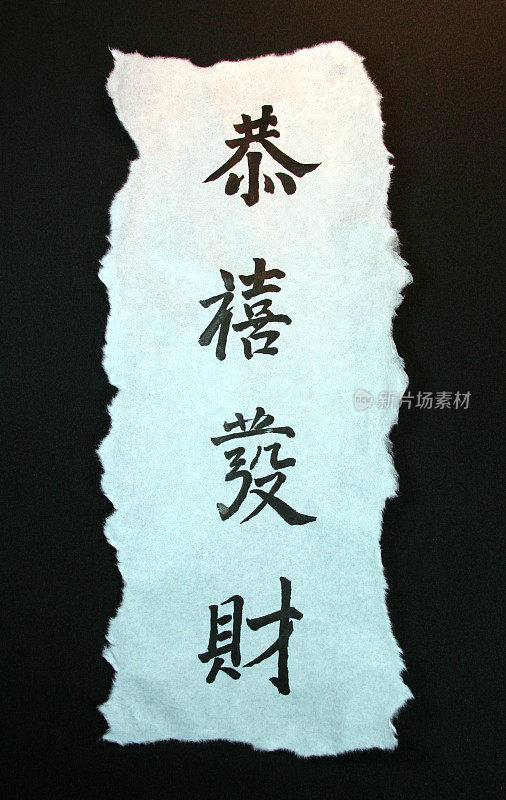 恭禧發財
新片场素材